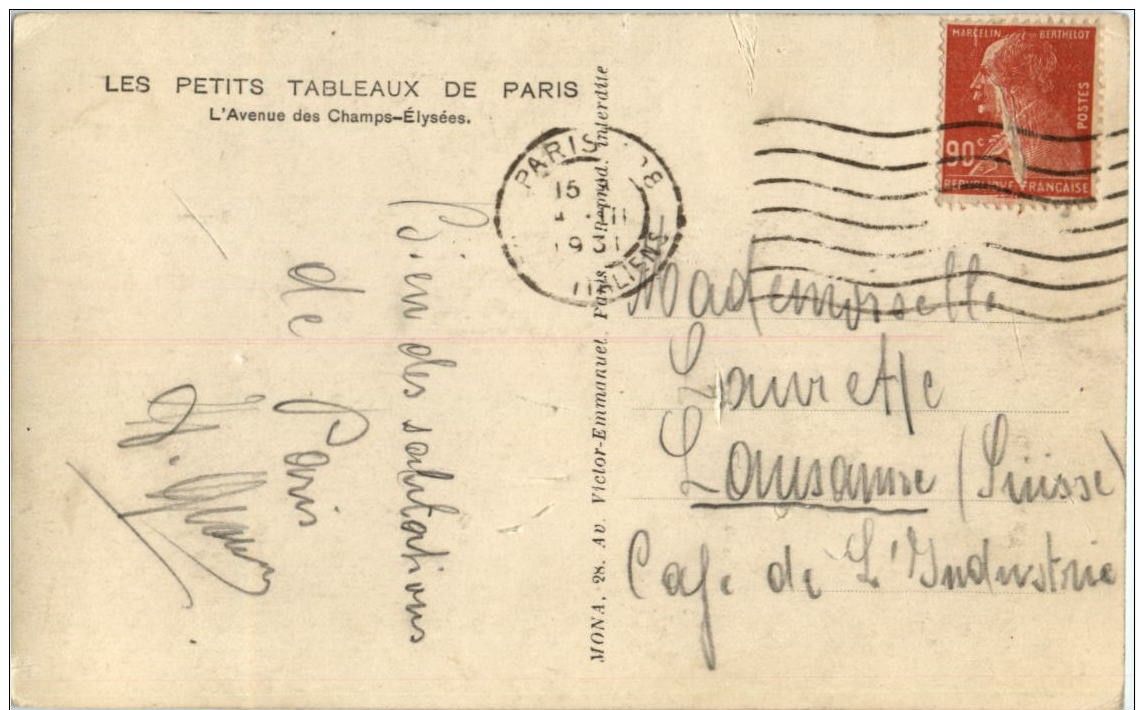 LES PETITS TABLEAUX DE PARIS
L'Avenue des Champs-Élysées.
MARCELIN BERTHELOT
POSTES
90c
REPUBLIQUE FRANÇAISE
PARIS
15
MONA, 28. Av. Victor-Emmanuel. Paris. Reprod. interdite
Bien des salutations
de
Paris
Mademoiselle
Laurette
Lausanne (Suisse)
Café de L'Industrie